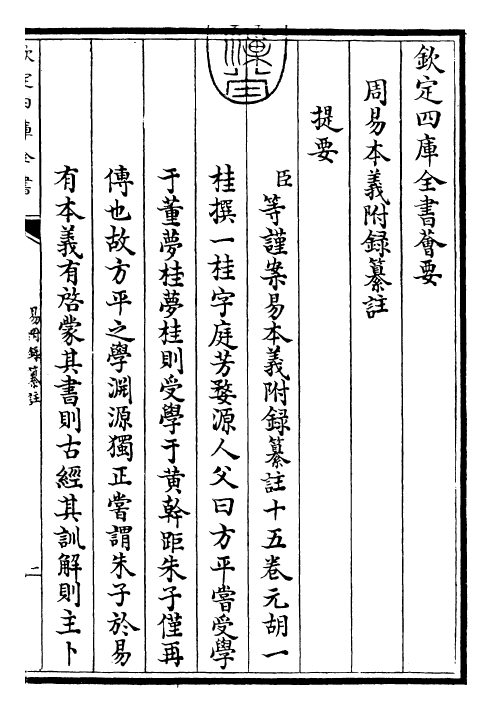 欽定四庫全書薈要
周易本義附録纂註
提要
臣等謹案易本義附録纂註十五卷元胡一
桂撰一桂字庭芳婺源人父曰方平嘗受學
于董夢桂夢桂則受學于黄幹距朱子僅再
傳也故方平之學淵源獨正嘗謂朱子於易
有本義有啓蒙其書則古經其訓解則主卜
欽定四庫全書
易附録纂註
二